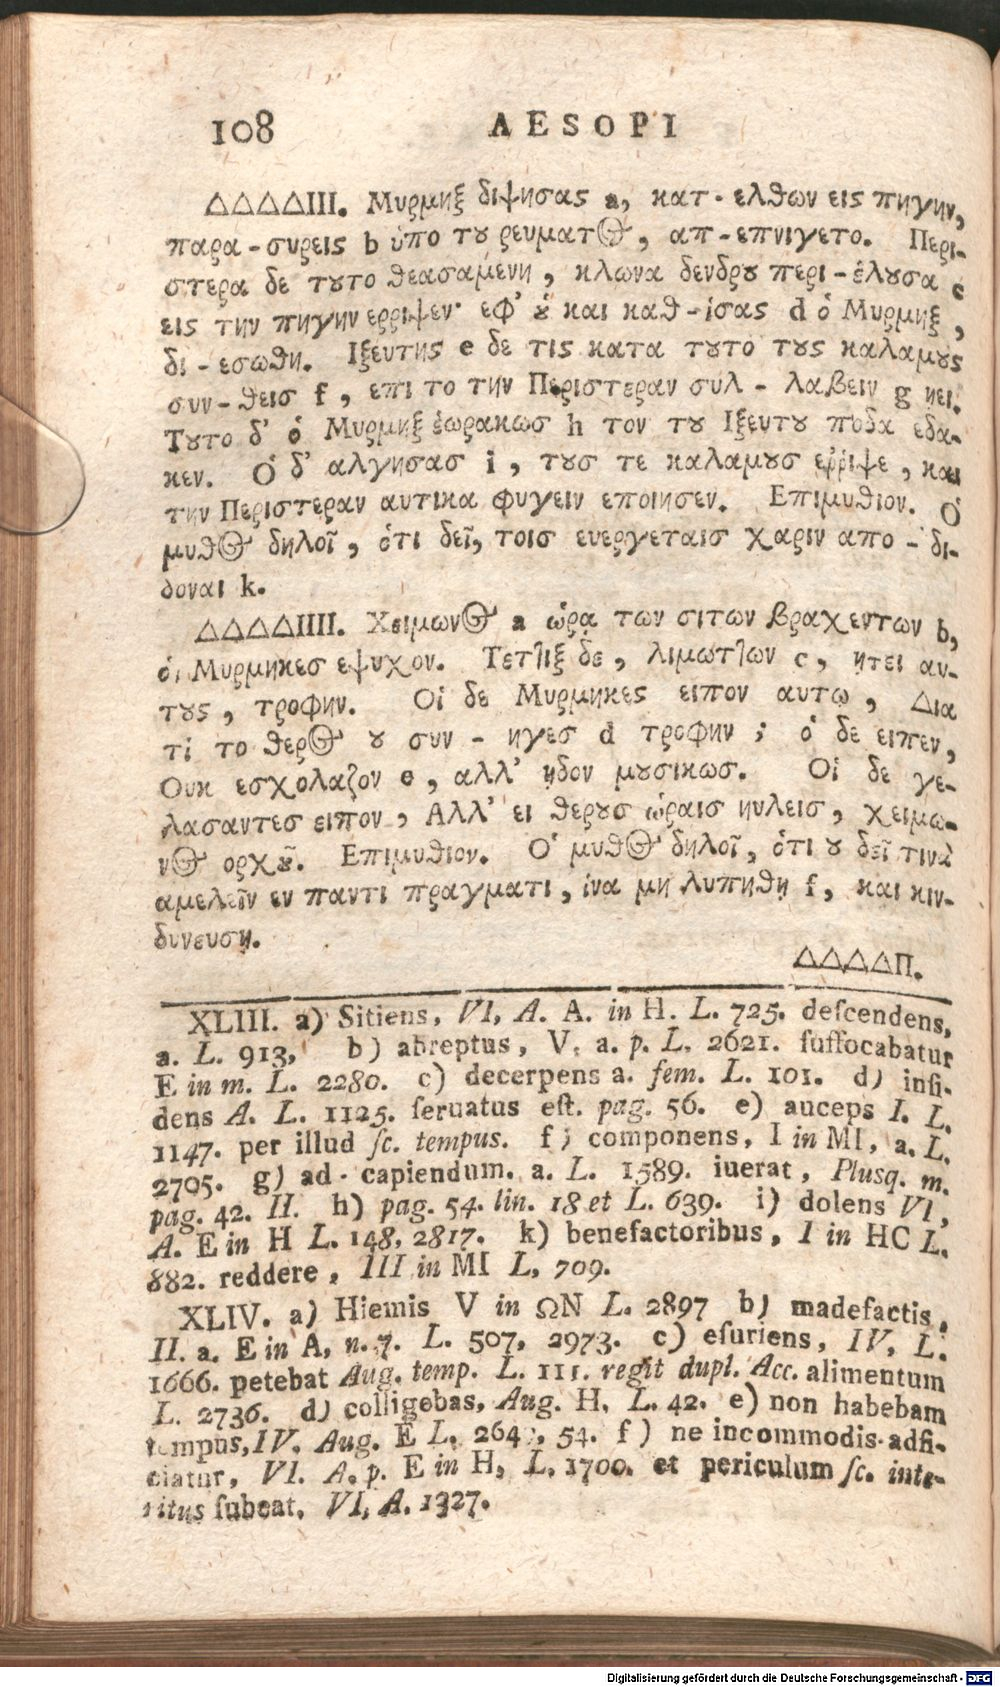 108 AESOPI
ΔΔΔΔIII. Μυρμηξ διψησας a, κατ - ελθων εις πηγην,
παρα - συρεις b ὑπο τȣ ρευματ☉, απ - επνιγετο. Περι-
στερα δε τȣτο θεασαμενη, κλωνα δενδρȣ περι - ἑλȣσα c
εις την πηγην ερριψεν· εφ' ȣ̔ και καθ - ίσας d ὁ Μυρμηξ,
δι - εσωθη. Ιξευτης e δε τις κατα τȣτο τȣς καλαμȣς
συν - θεισ f, επι το την Περιστεραν συλ - λαβειν g ῃει.
Τȣτο δ' ὁ Μυρμηξ ἑωρακωσ h τον τȣ Ιξευτȣ ποδα εδα-
κεν. Ὁ δ' αλγησασ i, τȣσ τε καλαμȣσ ερῥιψε, και
την Περιστεραν αυτικα φυγειν εποιησεν. Επιμυθιον. Ὁ
μυθ☉ δηλοῖ, ὁτι δεῖ, τοισ ευεργεταισ χαριν απο - δι-
δοναι k.
ΔΔΔΔIIII. Χειμων☉ a ὡρᾳ των σιτων βραχεντων b,
ὁι Μυρμηκεσ εψυχον. Τετ]ιξ δε, λιμωτ]ων c, ῃτει αυ-
τȣς, τροφην. Οἱ δε Μυρμηκες ειπον αυτῳ, Δια
τί το θερ☉ ȣ συν - ηγες d τροφην; ὁ δε ειπεν,
Ουκ εσχολαζον e, αλλ' ῃδον μȣσικωσ. Οἱ δε γε-
λασαντεσ ειπον, Αλλ' ει θερȣσ ὡραισ ηυλεισ, χειμω-
ν☉ ορχȣ͂. Επιμυθιον. Ὁ μυθ☉ δηλοῖ, ὁτι ȣ δεῖ τινὰ
αμελεῖν εν παντι πραγματι, ἱνα μη λυπηθῃ f, και κιν-
δυνευσῃ.
ΔΔΔΔΠ.
XLIII. a) Sitiens, VI, A. A. in H. L. 725. deſcendens,
a. L. 913, b) abreptus, V. a. p. L. 2621. ſuffocabatur
E in m. L. 2280. c) decerpens a. fem. L. 101. d) inſi-
dens A. L. 1125. ſeruatus eſt. pag. 56. e) auceps I. L.
1147. per illud ſc. tempus. f) componens, I in MI, a. L.
2705. g) ad - capiendum. a. L. 1589. iuerat, Plusq. m.
pag. 42. II. h) pag. 54. lin. 18 et L. 639. i) dolens VI,
A. E in H L. 148, 2817. k) benefactoribus, I in HC L.
882. reddere, III in MI L, 709.
XLIV. a) Hiemis V in ΩN L. 2897 b) madefactis,
II. a. E in A, n. 7. L. 507, 2973. c) eſuriens, IV, L.
1666. petebat Aug. temp. L. 111. regit dupl. Acc. alimentum
L. 2736. d) colligebas, Aug. H. L. 42. e) non habebam
tempus, IV. Aug. E L. 54. f) ne incommodis adfi-
ciatur, VI. A. p. E in H, L. 1700. et periculum ſc. inte-
ritus ſubeat. VI, A. 1327.
Digitalisierung gefördert durch die Deutsche Forschungsgemeinschaft - DFG